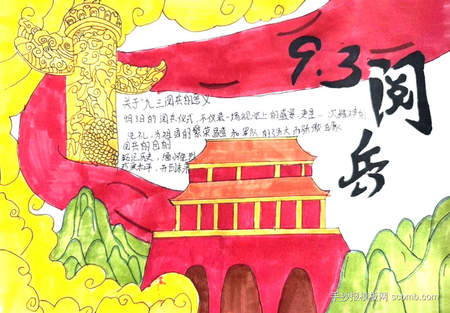 9.3
阅兵
关于"九三阅兵的意义
明日的阅兵仪式,不仅是一场视觉上的盛宴,更是一次精神的
洗礼,为祖国的繁荣昌盛和军队的强大而骄傲自豪
阅兵的目的
铭记历史,缅怀先烈
珍爱和平,开创未来
手抄报模板网 scbmb.com